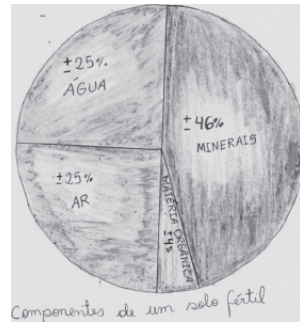 ± 25%
ÁGUA
± 46%
MINERAIS
± 25%
AR
MATÉRIA ORGÂNICA
Componentes de um solo fértil